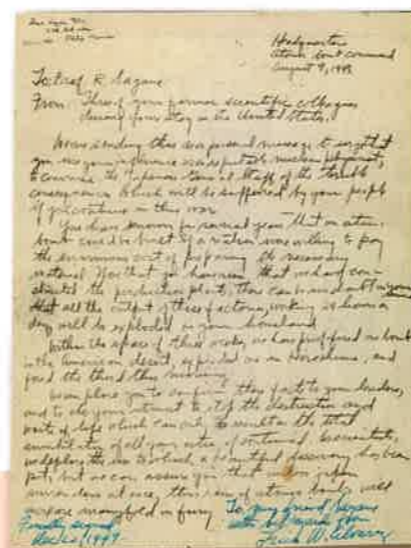 Headquarters
Atomic bomb command
August 9, 1945
To: Prof. R. Sagane
From: Three of your former scientific colleagues
during your stay in the United States.
We are sending this as a personal message to urge that
you use your influence as a reputable nuclear physicist,
to convince the Japanese General Staff of the terrible
consequences which will be suffered by your people
if you continue in this war.
You have known for several years that an atomic
bomb could be built if a nation were willing to pay
the enormous cost of preparing the necessary
material. Now that you have seen that we have con-
structed the production plants, there can be no doubt in your mind
that all the output of these factories, working 24 hours a
day, will be exploded on your homeland.
Within the space of three weeks, we have proof-fired one bomb
in the American desert, exploded one in Hiroshima, and
fired the third this morning.
We implore you to confirm these facts to your leaders,
and to do your utmost to stop the destruction and
waste of life which can only result in the total
annihilation of all your cities if continued. As scientists,
we deplore the use to which a beautiful discovery has been
put, but we can assure you that unless Japan
surrenders at once, this rain of atomic bombs will
increase manyfold in fury.
To my friend Sagane
With best regards from
Luis W. Alvarez
signed
Dec 22, 1949